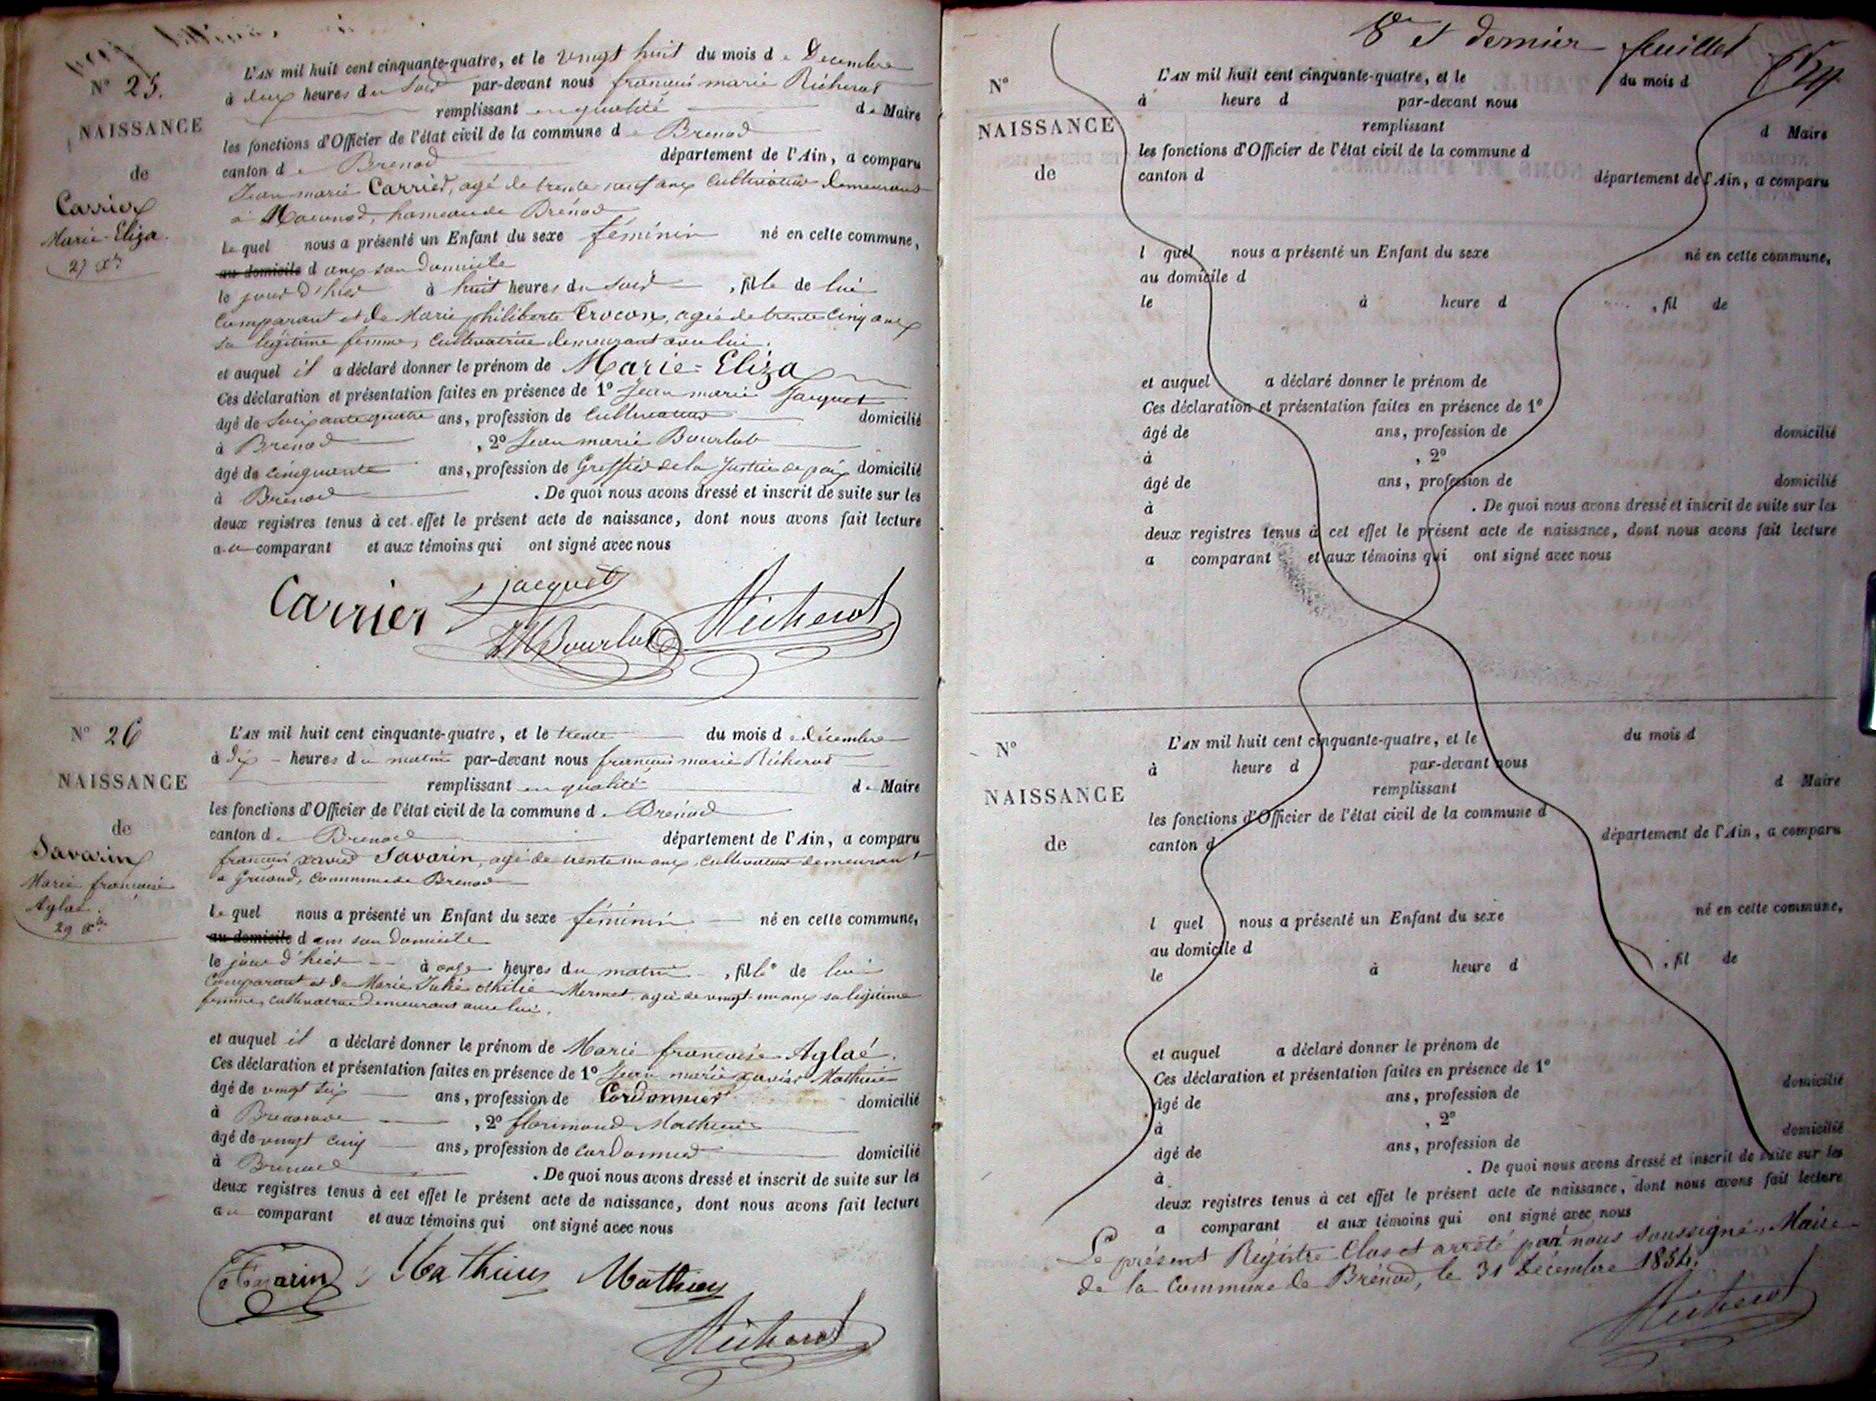 N° 25.
NAISSANCE
de
Carrier
Marie-Eliza.
27 Xbre
L'AN mil huit cent cinquante-quatre, et le vingt huit du mois de Décembre
à deux heures du soir par-devant nous françois marie Richerot
remplissant en qualité de Maire
les fonctions d'Officier de l'état civil de la commune de Brenod
canton de Brenod département de l'Ain, a comparu
Jean marie Carrier, agé de trente neuf ans cultivateur demeurant
à Macconod, hameau de Brénod
le quel nous a présenté un Enfant du sexe féminin né en cette commune,
au domicile dans son domicile
le jour d'hier à huit heures du soir, fille de lui
comparant et de Marie philiberte Trocon, agée de trente cinq ans
sa légitime femme, cultivatrice demeurant avec lui.
et auquel il a déclaré donner le prénom de Marie-Eliza
Ces déclaration et présentation faites en présence de 1° Jean marie Jacquet
âgé de soixante quatre ans, profession de cultivateur domicilié
à Brenod, 2° Jean marie Bourlot
âgé de cinquante ans, profession de Greffier de la Justice de paix domicilié
à Brenod. De quoi nous avons dressé et inscrit de suite sur les
deux registres tenus à cet effet le présent acte de naissance, dont nous avons fait lecture
au comparant et aux témoins qui ont signé avec nous
Carrier jacquet
JM Bourlot Richerot
N° 26
NAISSANCE
de
Savarin
Marie françoise
Aglaé.
29 Xbre
L'AN mil huit cent cinquante-quatre, et le trente du mois de décembre
à dix heures du matin par-devant nous françois marie Richerot
remplissant en qualité de Maire
les fonctions d'Officier de l'état civil de la commune de Brénod
canton de Brenod département de l'Ain, a comparu
françois xavier Savarin, agé de trente un ans, cultivateur demeurant
commune de Brenod
le quel nous a présenté un Enfant du sexe féminin né en cette commune,
au domicile dans son domicile
le jour d'hier à onze heures du matin, fille de lui
comparant et de Marie Julie Othilie Mermet, agée de vingt un ans sa légitime
femme, cultivatrice demeurant avec lui.
et auquel il a déclaré donner le prénom de Marie françoise Aglaé.
Ces déclaration et présentation faites en présence de 1° Jean marie xavier Mathieu
âgé de vingt six ans, profession de Cordonnier domicilié
à Brenod, 2° florimond Mathieu
âgé de vingt cinq ans, profession de cordonnier domicilié
à Brenod. De quoi nous avons dressé et inscrit de suite sur les
deux registres tenus à cet effet le présent acte de naissance, dont nous avons fait lecture
au comparant et aux témoins qui ont signé avec nous
Savarin Mathieu Mathieu
Richerot
8e et dernier feuillet
N°
NAISSANCE
de
L'AN mil huit cent cinquante-quatre, et le du mois d
à heure d par-devant nous
remplissant d Maire
les fonctions d'Officier de l'état civil de la commune d
canton d département de l'Ain, a comparu
l quel nous a présenté un Enfant du sexe né en cette commune,
au domicile d
le à heure d, fil de
et auquel a déclaré donner le prénom de
Ces déclaration et présentation faites en présence de 1°
âgé de ans, profession de domicilié
à, 2°
âgé de ans, profession de domicilié
à. De quoi nous avons dressé et inscrit de suite sur les
deux registres tenus à cet effet le présent acte de naissance, dont nous avons fait lecture
a comparant et aux témoins qui ont signé avec nous
N°
NAISSANCE
de
L'AN mil huit cent cinquante-quatre, et le du mois d
à heure d par-devant nous
remplissant d Maire
les fonctions d'Officier de l'état civil de la commune d
canton d département de l'Ain, a comparu
l quel nous a présenté un Enfant du sexe né en cette commune,
au domicile d
le à heure d, fil de
et auquel a déclaré donner le prénom de
Ces déclaration et présentation faites en présence de 1°
âgé de ans, profession de domicilié
à, 2°
âgé de ans, profession de domicilié
à. De quoi nous avons dressé et inscrit de suite sur les
deux registres tenus à cet effet le présent acte de naissance, dont nous avons fait lecture
a comparant et aux témoins qui ont signé avec nous
Le présent Régistre Clos et arrêté par nous soussigné, Maire
de la Commune de Brénod, le 31 décembre 1854.
Richerot